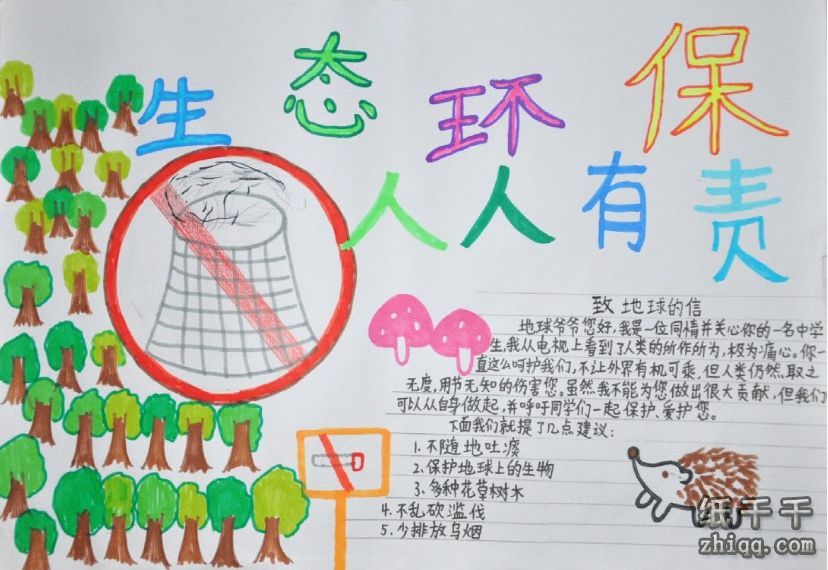 生态环保
人人有责
致地球的信
地球爷爷您好,我是一位同情并关心你的一名中学
生,我从电视上看到了人类的所作所为,极为痛心。你一
直这么呵护我们,不让外界有机可乘,但人类仍然,取之
无度,用节无知的伤害您。虽然我不能为您做出很大贡献,但我们
可以从自身做起,并呼吁同学们一起保护、爱护您。
下面我们就提了几点建议:
1.不随地吐痰
2.保护地球上的生物
3.多种花草树木
4.不乱砍滥伐
5.少排放乌烟
纸千千
zhiqq.com